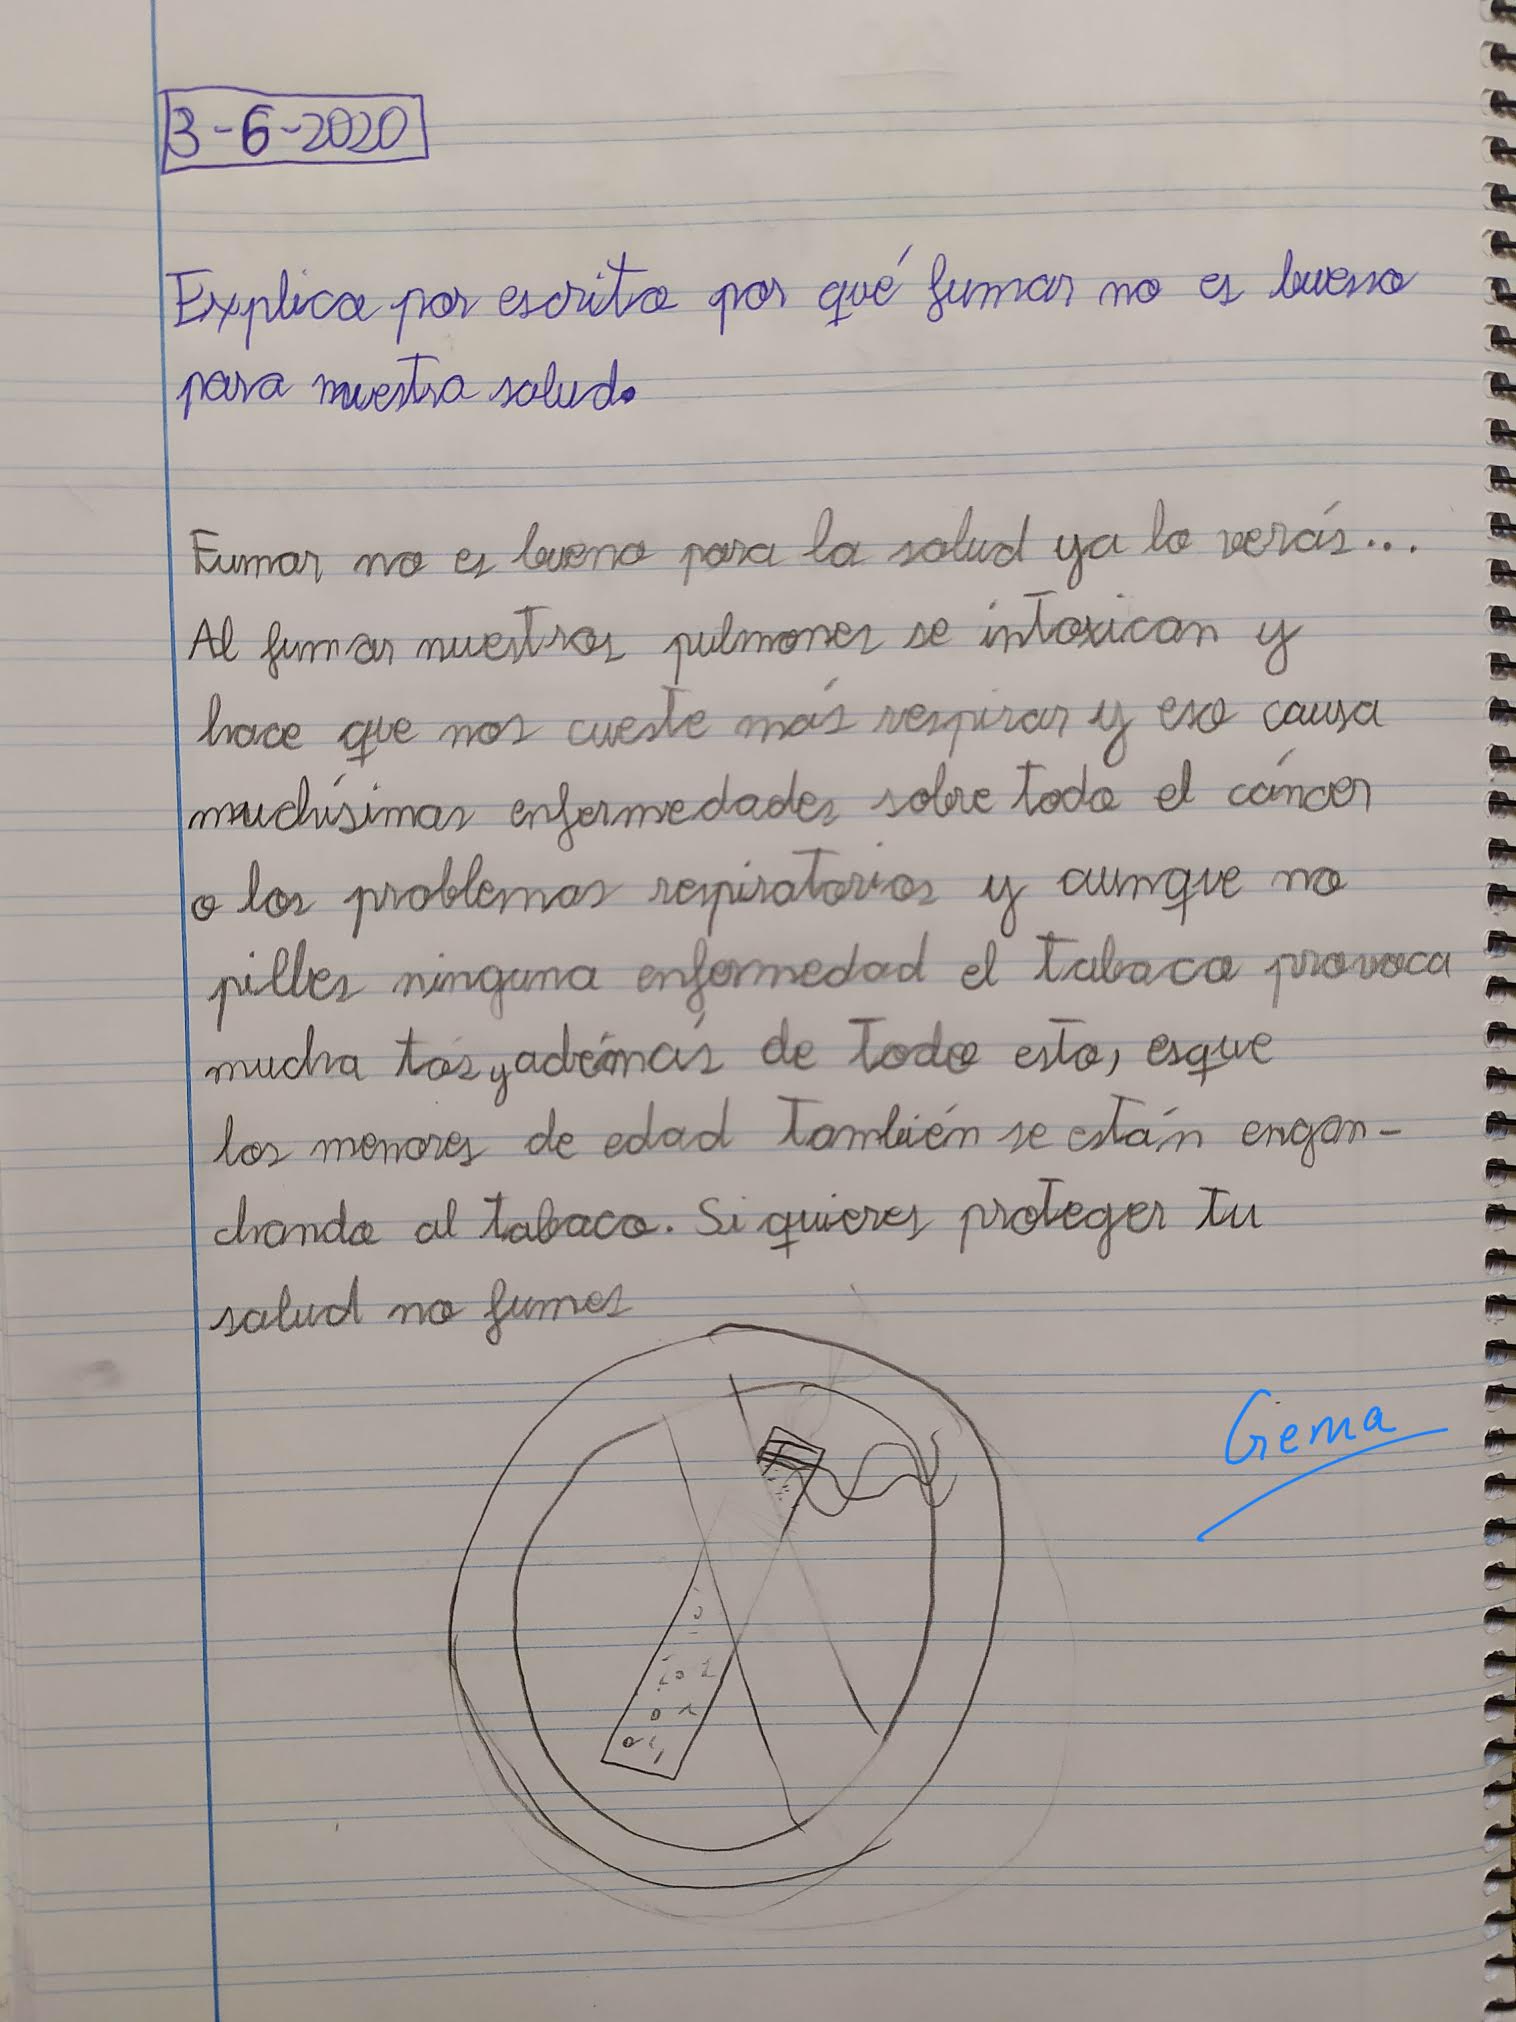 3-6-2020
Explica por escrito por qué fumar no es bueno
para nuestra salud.
Fumar no es bueno para la salud ya lo verás...
Al fumar nuestros pulmones se intoxican y
hace que nos cueste más respirar y eso causa
muchísimas enfermedades sobre todo el cáncer
o los problemas respiratorios y aunque no
pilles ninguna enfermedad el tabaco provoca
mucha tós y adémás de todo esto, esque
los menores de edad también se están engan-
chando al tabaco. Si quieres proteger tu
salud no fumes
Gema